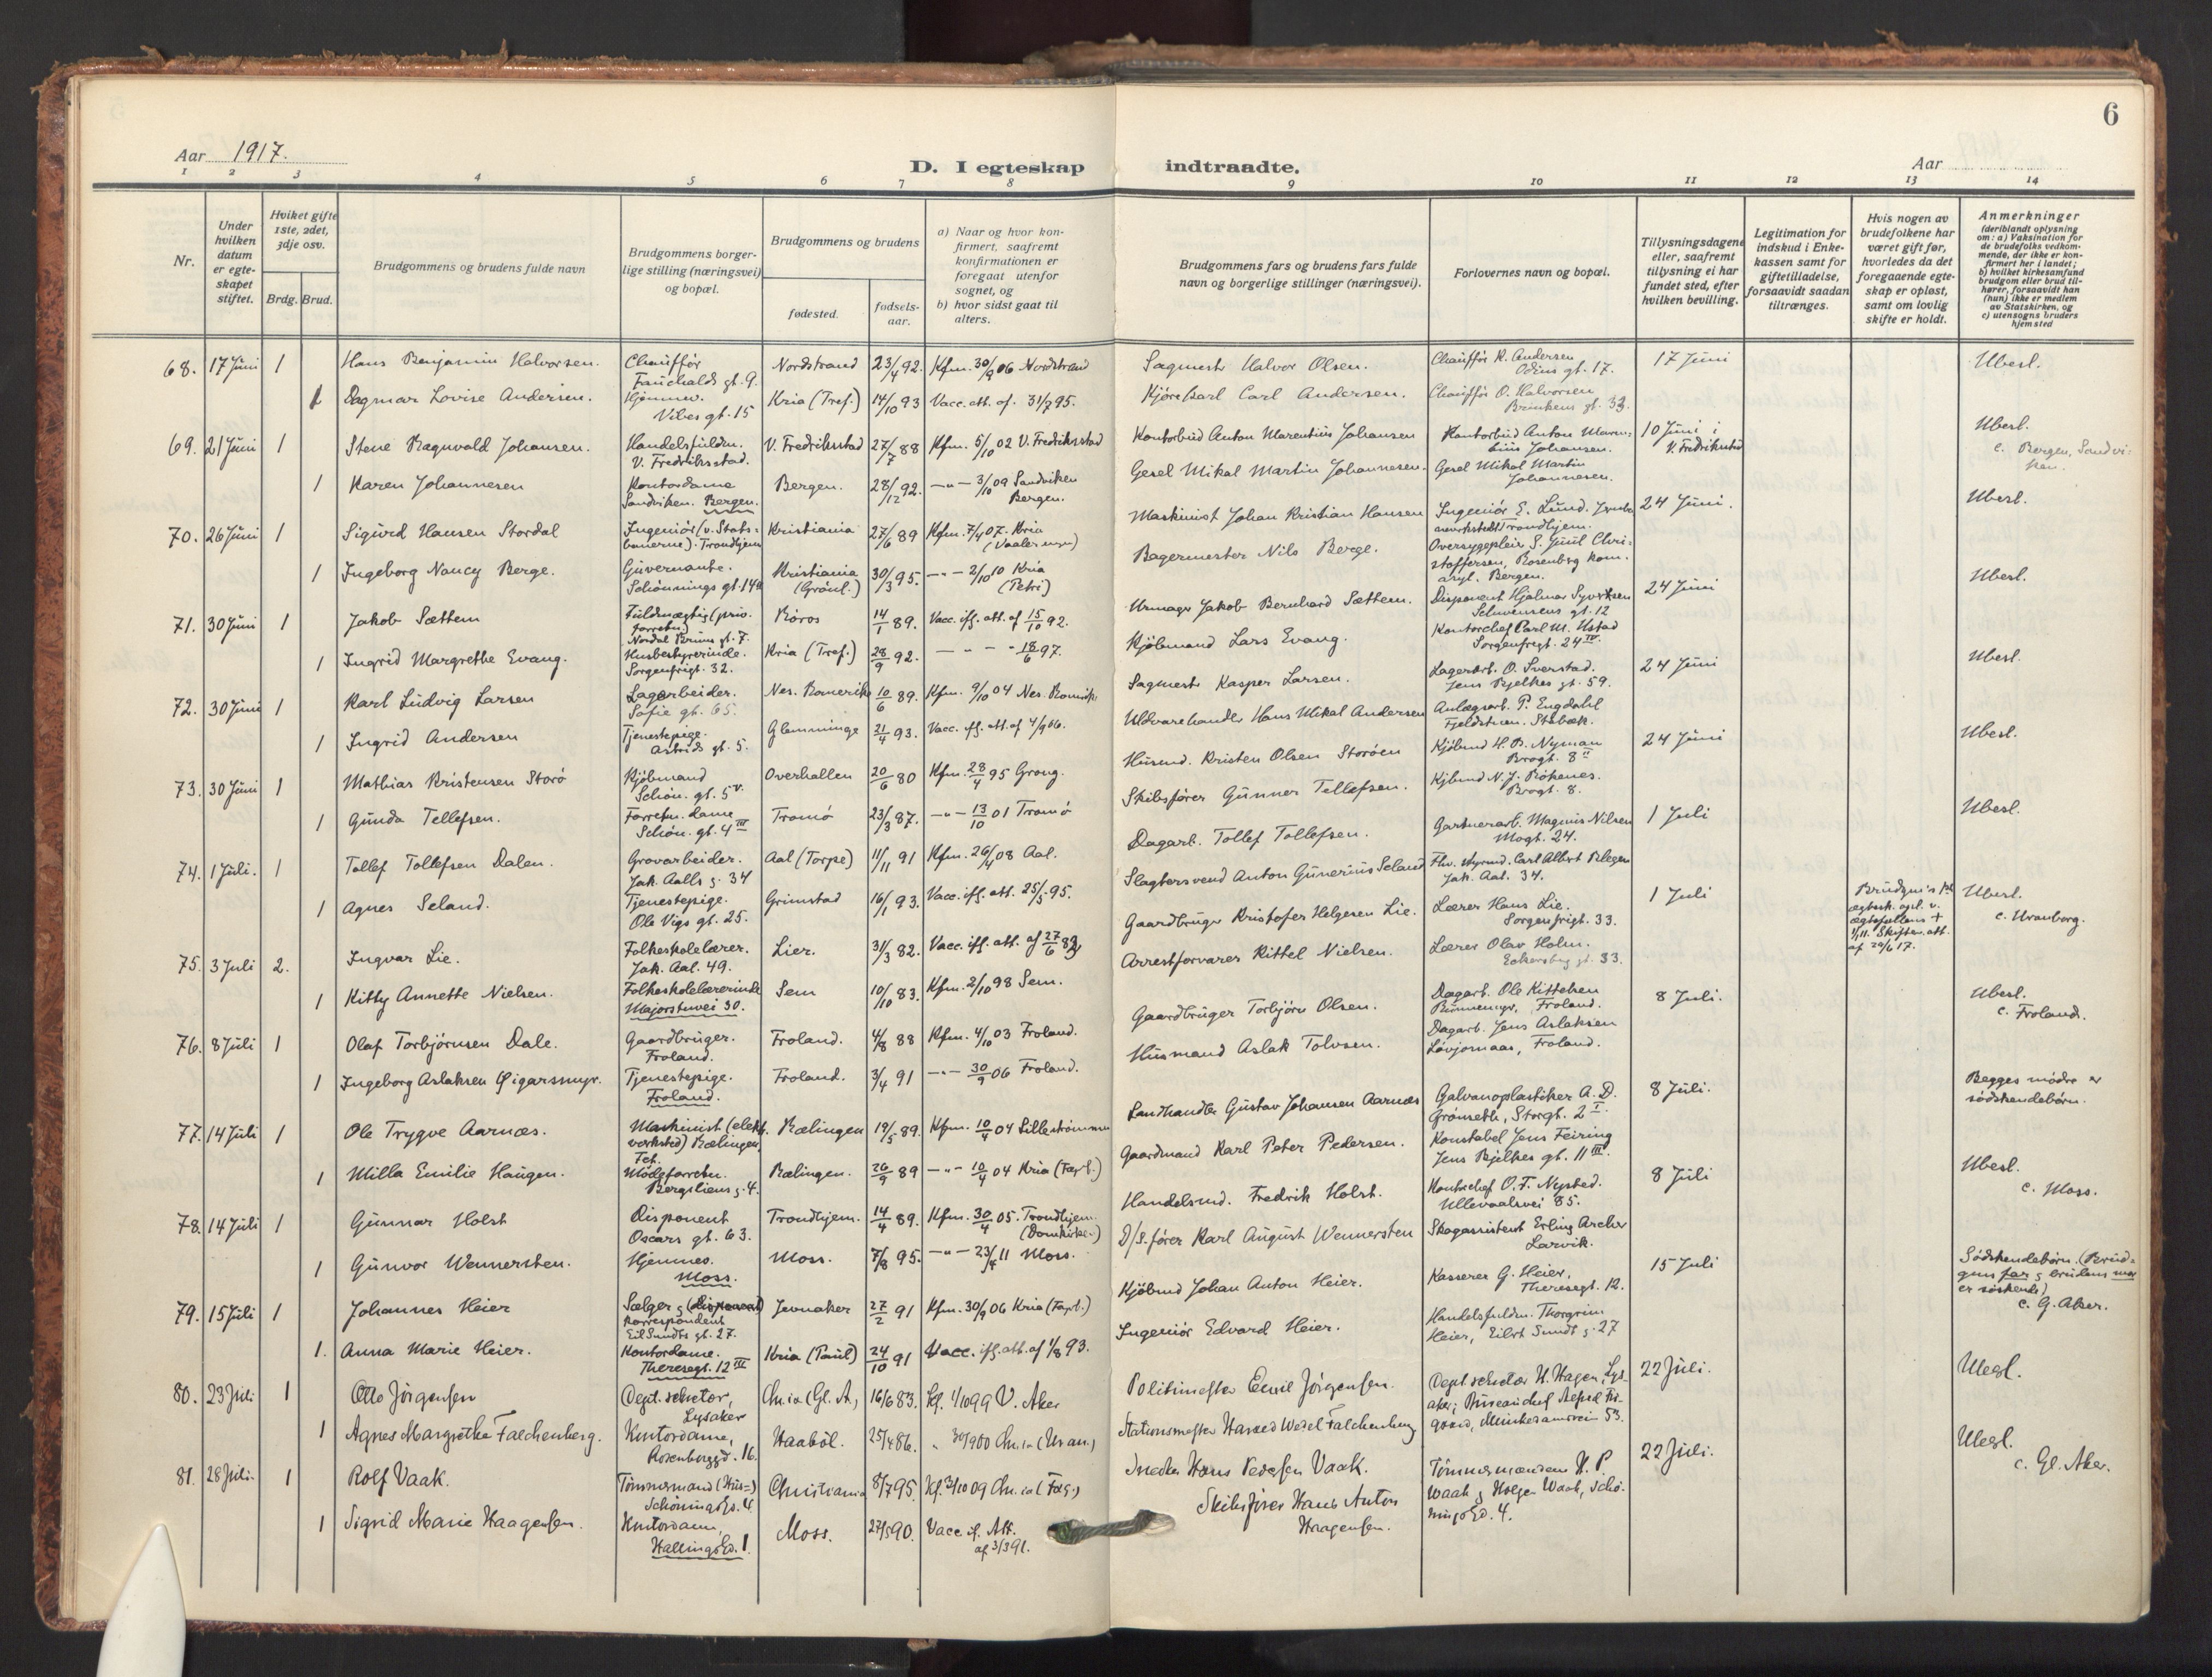 6
Aar 1917.
D. I egteskap indtraadte.
Aar
1 2 3 4 5 6 7 8 9 10 11 12 13 14
Nr.
Under hvilken datum er egteskapet stiftet.
Hviket gifte 1ste, 2det, 3dje osv.
Brdg. Brud.
Brudgommens og brudens fulde navn
Brudgommens borgerlige stilling (næringsvei) og bopæl.
Brudgommens og brudens
fødested.
fødselsaar.
a) Naar og hvor konfirmert, saafremt konfirmationen er foregaat utenfor sognet, og
b) hvor sidst gaat til alters.
Brudgommens fars og brudens fars fulde navn og borgerlige stillinger (næringsvei).
Forlovernes navn og bopæl.
Tillysningsdagene eller, saafremt tillysning ei har fundet sted, efter hvilken bevilling.
Legitimation for indskud i Enkekassen samt for giftetilladelse, forsaavidt saadan tiltrænges.
Hvis nogen av brudefolkene har været gift før, hvorledes da det foregaaende egteskap er opløst, samt om lovlig skifte er holdt.
Anmerkninger (deriblandt oplysning om: a) Vaksination for de brudefolks vedkommende, der ikke er konfirmert her i landet; b) hvilket kirkesamfund brudgom eller brud tilhører, forsaavidt han (hun) ikke er medlem av Statskirken, og c) utensogns bruders hjemsted
68. 17 Juni 1 Hans Benjamin Halvorsen. Chauffør Fauchalds gt. 9. Nordstrand 23/4 92. Kfm. 30/9 06 Nordstrand Sagmester Halvor Olsen. Chauffør R. Andersen Odins gt. 17. 17 Juni Ubesl.
1 Dagmar Lovise Andersen. Hjemmev. Vibes gt. 15 Kria (Tref.) 14/10 93 Vacc. att. af. 31/7 95. Kjørekarl Carl Andersen. Chauffør O. Halvorsen Brinkens gt. 33.
69. 21 Juni 1 Stene Ragnvald Johansen. Handelsfuldm. V. Fredriksstad. V. Fredriksstad 27/7 88 Kfm. 5/10 02 V. Fredriksstad Kontorbud Anton Marentius Johansen Kontorbud Anton Marentius Johansen. 10 Juni i V. Fredrikstad Ubesl. c. Bergen, Sandviken.
1 Karen Johannesen Kontordame Sandviken. Bergen. Bergen. 28/12 92. —"— 3/10 09 Sandviken Bergen. Gesel Mikal Martin Johannesen. Gesel Mikal Martin Johannesen.
70. 26 Juni 1 Sigurd Hansen Stordal Ingeniør (v. Statsbanerne). Trondhjem Kristiania 27/6 89 Kfm. 7/4 07. Kria (Vaalerengen) Maskinist Johan Kristian Hansen Ingeniør E. Lund. Trondhjem. 24 Juni. Ubesl.
1 Ingeborg Nancy Berge. Guvernante. Schønnings gt. 14a Kristiania (Grønl.) 30/3 95. —"— 2/10 10 Kria (Petri) Bagermester Nils Berge. Oversygepleier S. Juul Christoffersen, Rosenberg kom. asyl. Bergen.
71. 30 Juni 1 Jakob Sættem Fuldmægtig (priv. forretn.) Nordal Bruns gt. 7. Røros 14/1 89. Vacc. iflg. att. af 15/10 92. Urmager Jakob Bernhard Sættem. Disponent Hjalmar Syvertsen Schwensens gt. 12 24 Juni Ubesl.
1 Ingrid Margrethe Evang. Husbestyrerinde. Sorgenfrigt. 32. Kria (Tref.) 28/9 92. — " — " 18/6 97. Kjøbmand Lars Evang. Kontorchef Carl M. Ustad Sorgenfrigt. 24 IV
72. 30 Juni 1 Karl Ludvig Larsen Lagerarbeider. Sofie gt. 65. Nes. Romerike 10/6 89. Kfm. 9/10 04 Nes. Romerike Sagmester Kasper Larsen. Lagerarb. O. Sverstad. Jens Bjelkes gt. 59. 24 Juni Ubesl.
1 Ingrid Andersen Tjenestepige. Astrids gt. 5. Glemminge 21/4 93. Vacc. iflg. att. af 4/9 06. Uldvarehandler Hans Mikal Andersen Anlægsarb. P. Engdahl Fjeldstuen. Stabæk.
73. 30 Juni 1 Mathias Kristensen Storø Kjøbmand Schøn. gt. 5 V. Overhallen 20/6 80 Kfm. 28/4 95 Grong. Husmd. Kristen Olsen Storøen Kjøbmd H. B. Nyman Brogt. 8 II 24 Juni Ubesl.
1 Gunda Tellefsen. Forretn. dame Schøn. gt. 4 III Tromø 23/3 87. —"— 13/10 01 Tromø Skibsfører Gunner Tellefsen. Kjøbmd N. J. Røkenes. Brogt. 8.
74. 1 Juli. 1 Tollef Tollefsen Dalen. Grovarbeider. Jak. Aalls g. 34 Aal (Torpe) 11/11 91 Kfm. 26/4 08 Aal. Dagarb. Tollef Tollefsen. Gartnerarb. Magnus Nilsen Mogt. 24. 1 Juli Ubesl.
1 Agnes Seland. Tjenestepige. Ole Vigs gt. 25. Grimstad 16/1 93. Vacc. iflg. att. 25/5 95. Slagtersvend Anton Gunerius Seland Fhv. styrmd. Carl Albert Blegen Jak. Aal. 34.
75. 3 Juli 2. Ingvar Lie. Folkeskolelærer. Jak. Aal. 49. Lier. 31/3 82. Vacc. iflg. att. af 27/6 82 Gaardbruger Kristofer Helgesen Lie. Lærer Hans Lie. Sorgenfrigt. 33. 1 Juli Brudgm's ægtesk. opl. v. ægtefællens + 1/11. Skifteatt. af 29/6 17. Ubesl. c. Uranborg.
1 Kitty Annette Nielsen. Folkeskolelærerinde Majorstuvei 30. Sem 10/10 83. Kfm. 2/10 98 Sem. Arrestforvarer Kittel Nielsen. Lærer Olav Holm. Eckersberg gt. 33.
76. 8 Juli 1 Olaf Torbjørnsen Dale. Gaardbruger. Froland. Froland. 4/8 88 Kfm. 4/10 03 Froland. Gaardbruger Torbjørn Olsen. Dagarb. Ole Kittelsen Froland. 8 Juli. Ubesl. c. Froland.
1 Ingeborg Aslaksen Øigarsmyr. Tjenestepige. Froland. Froland. 3/4 91 —"— 30/9 06 Froland. Husmand Aslak Tolvsen. Dagarb. Jens Aslaksen Løvjomaas, Froland.
77. 14 Juli 1 Ole Trygve Aarnæs. Maskinist (elekt. verksted) Rælingen, Fet. Rælingen 19/5 89. Kfm. 10/4 04 Lillestrømmen Landhandler Gustav Johansen Aarnæs Galvanoplastiker A. D. Grønseth, Storgt. 2 I. 8 Juli. Begges mødre er sødskendebørn.
1 Milla Emilie Haugen. Modeforretn. Bergsliens g. 4. Rælingen. 26/9 89 —"— 10/4 04 Kria (Fagrb.) Gaardmand Karl Peter Pedersen. Konstabel Jens Feiring Jens Bjelkes gt. 11 III.
78. 14 Juli 1 Gunnar Holst Disponent Oscars gt. 63. Trondhjem. 14/4 89. Kfm. 30/4 05. Trondhjem. (Domkirken) Handelsmd. Fredrik Holst. Kontorchef O. F. Nysted. Ullevaalsvei 85. 8 Juli Ubesl. c. Moss.
1 Gunvor Wennersten. Hjemmev. Moss. Moss. 7/8 95. —"— 23/4 11 Moss. D/S. fører Karl August Wennersten Skogassistent Erling Archer Larvik.
79. 15 Juli 1 Johannes Heier Sælger & (disponent) korrespondent Eil. Sundts gt. 27. Jevnaker 27/2 91 Kfm. 30/9 06 Kria (Fagrb.) Kjøbmd Johan Anton Heier. Kasserer G. Heier, Theresegt. 12. 15 Juli Sødskendebørn. (Brudgms far & brudens mor er søskende) c. G. Aker.
1. Anna Marie Heier. Kontordame. Theresegt. 12 III Kria (Paul) 24/10 91 Vacc. iflg. att. af 1/8 93. Ingeniør Edvard Heier. Handelsfuldm. Thorgrim Heier, Eilert Sundt g. 27
80. 23 Juli 1 Otto Jørgensen Dept. sekretær, Lysaker Ch.ia (Gl. A.) 16/6 83. Kf. 1/10 99 V. Aker Politimester Emil Jørgensen. Dept. sekretær H. Hagen, Lysaker; Bureauchef, Munkedamsvein 53. 22 Juli. Ubesl.
1 Agnes Margrethe Falchenberg. Kontordame, Rosenborggd. 16. Haabøl. 25/4 86. " 30/9 00 Ch.ia (Uran.) Stationsmester Harald Wedel Falchenberg
81. 28 Juli. 1 Rolf Vaak. Tømmermand (Hus=) Schøningsgd. 4 Christiania 8/7 95. Kf. 3/10 09 Ch.ia (Fagr.) Snedker Hans Pedersen Vaak. Tømmermændene H. P. Waak & Holger Waak, Schøningsgd. 4. 22 Juli. Ubesl. c. Gl. Aker.
1 Sigrid Marie Haagensen. Kontordame, Hallingsgd. 1. Moss. 27/5 90. Vacc. if. Att. af 3/3 91. Skibsfører Hans Anton Haagensen.